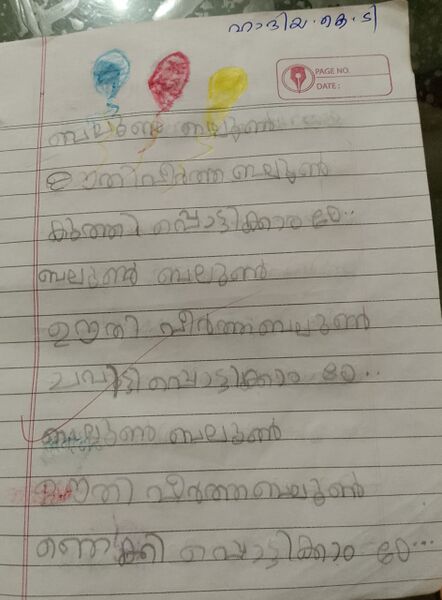 ഹാദിയ.കെ.ടി
PAGE NO.
DATE :
ബലൂൺ ബലൂൺ
ഊതി വീർത്ത ബലൂൺ
കുത്തി പൊട്ടിക്കാം ഠേ..
ബലൂൺ ബലൂൺ
ഊതി വീർത്ത ബലൂൺ
ചവിട്ടി പൊട്ടിക്കാം ഠേ..
ബലൂൺ ബലൂൺ
ഊതി വീർത്ത ബലൂൺ
ഞെക്കി പൊട്ടിക്കാം ഠേ...